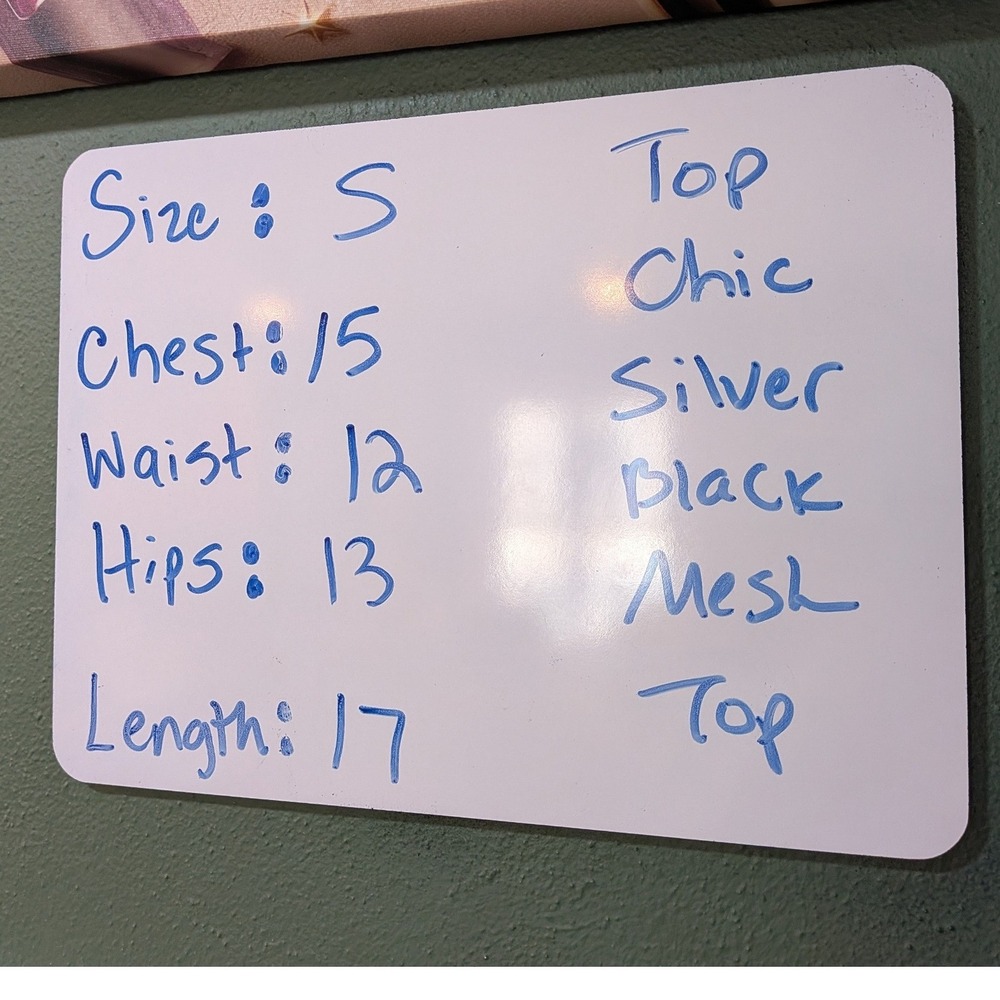 Size: S
Chest: 15
Waist: 12
Hips: 13
Length: 17
Top
Chic
Silver
Black
Mesh
Top